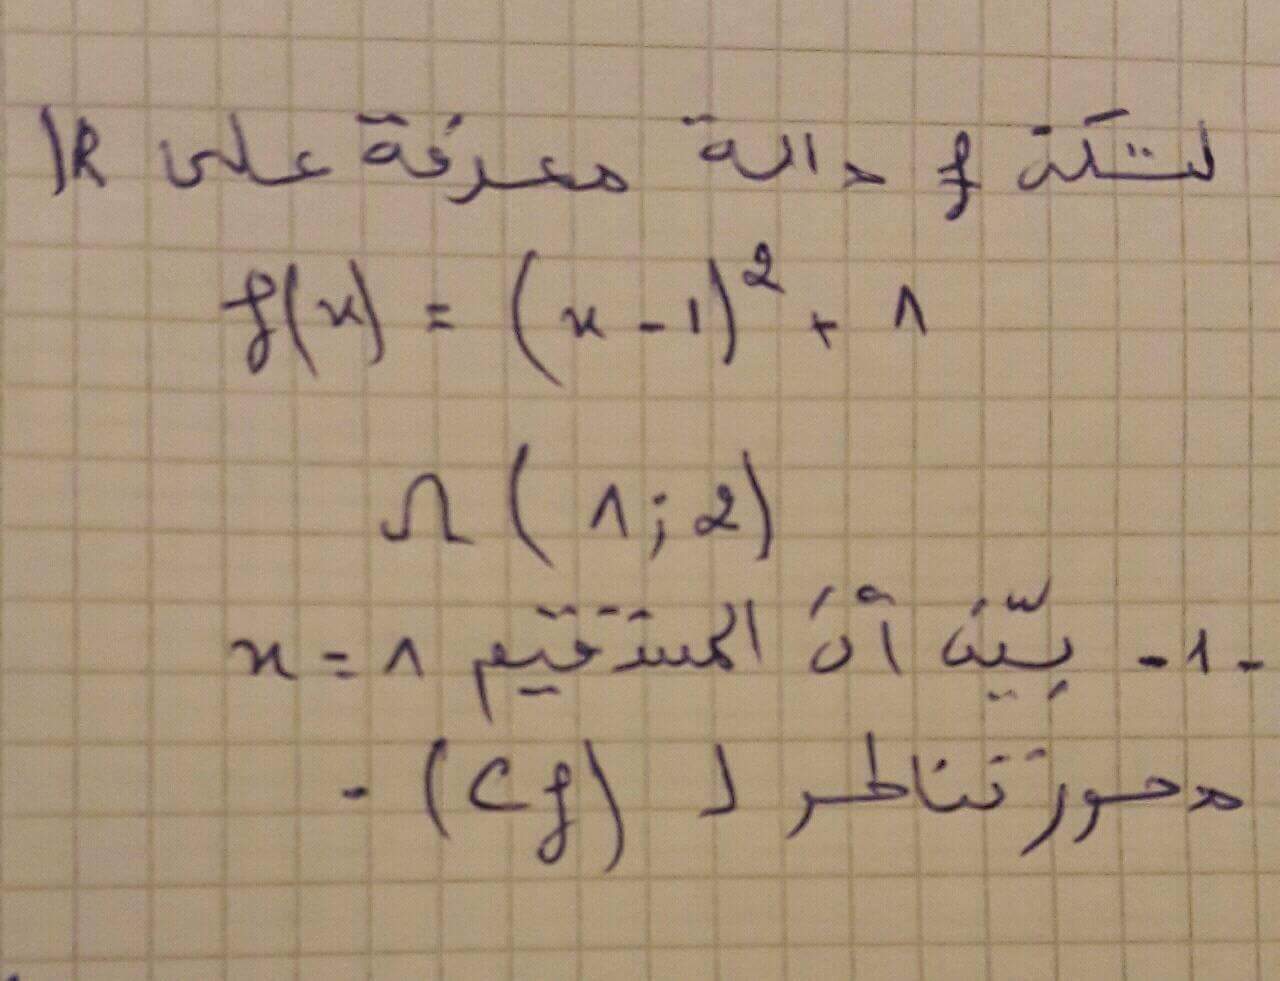 لتكن f دالة معرفة على IR
f(x) = (x - 1)² + 1
Ω (1 ; 2)
-1- بيّن أنّ المستقيم x = 1
محور تناظر لـ (Cf) .